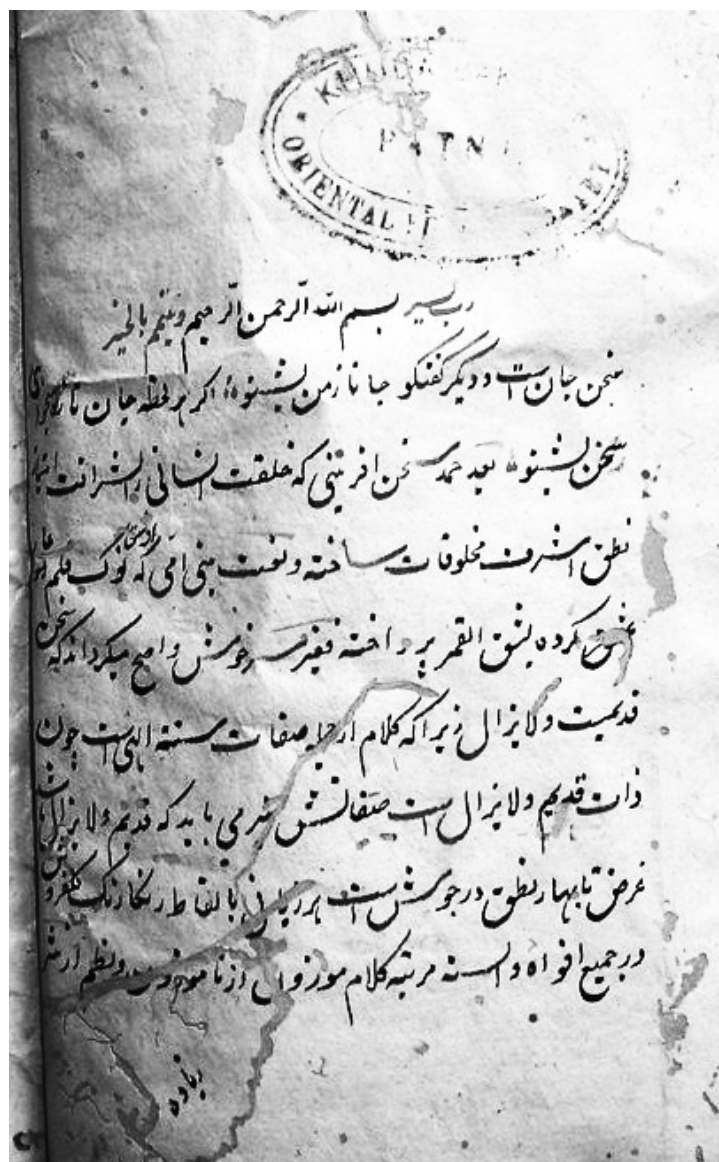 KHUDA
PATN
ORIENTAL LI
رب یسر بسم الله الرحمن الرحیم وتمم بالخیر
سخن جان است و دیگر گفتگو جانا ز من بشنو اگر هر لحظه جان تازه
سخن بشنو بعد حمد سخن افرینی که خلقت انسانی را بشرافت
نطق اشرف مخلوقات ساخته و نعت نبی امی که نوک قلم
کرده بشق القمر پرداخته فقیر سرخوش واضح میگرداند که سخن
قدیمیت و لایزال زیرا که کلام از جمله صفات سته الهی است چون
ذات قدیم و لایزال است صفاتش نیز می باید که قدیم و لایزال
غرض تا بهار نطق در جوش است هر زبانی بالفاظ رنگارنگ
در جمیع افواه و السنه مرتبه کلام موزون از ناموزون و نظم از نثر
زیاده